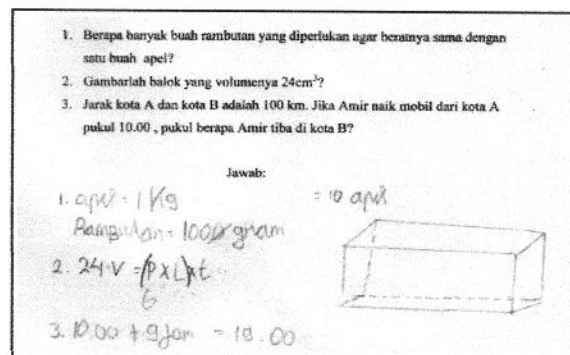 1. Berapa banyak buah rambutan yang diperlukan agar beratnya sama dengan
satu buah apel?
2. Gambarlah balok yang volumenya 24cm³?
3. Jarak kota A dan kota B adalah 100 km. Jika Amir naik mobil dari kota A
pukul 10.00 , pukul berapa Amir tiba di kota B?
Jawab:
1. apel = 1 Kg = 10 apel
Rambutan = 1000 gram
2. 24 V = (P x L) x t
6
3. 10.00 + 9 jam = 19.00